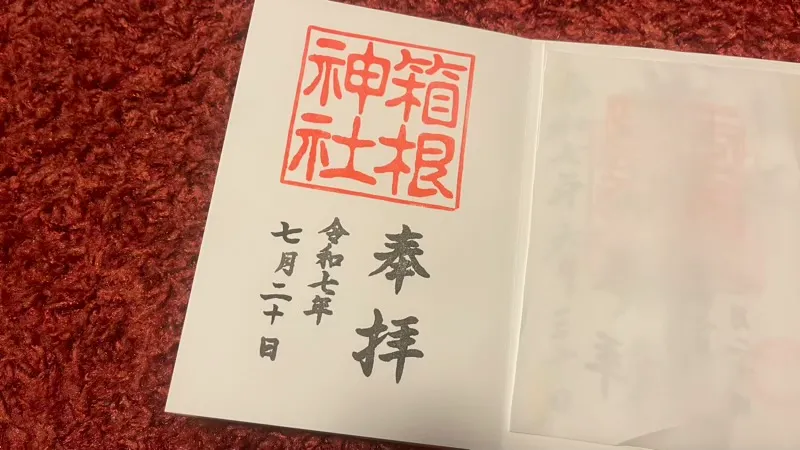 箱根
神社
奉拝
令和七年
七月二十日